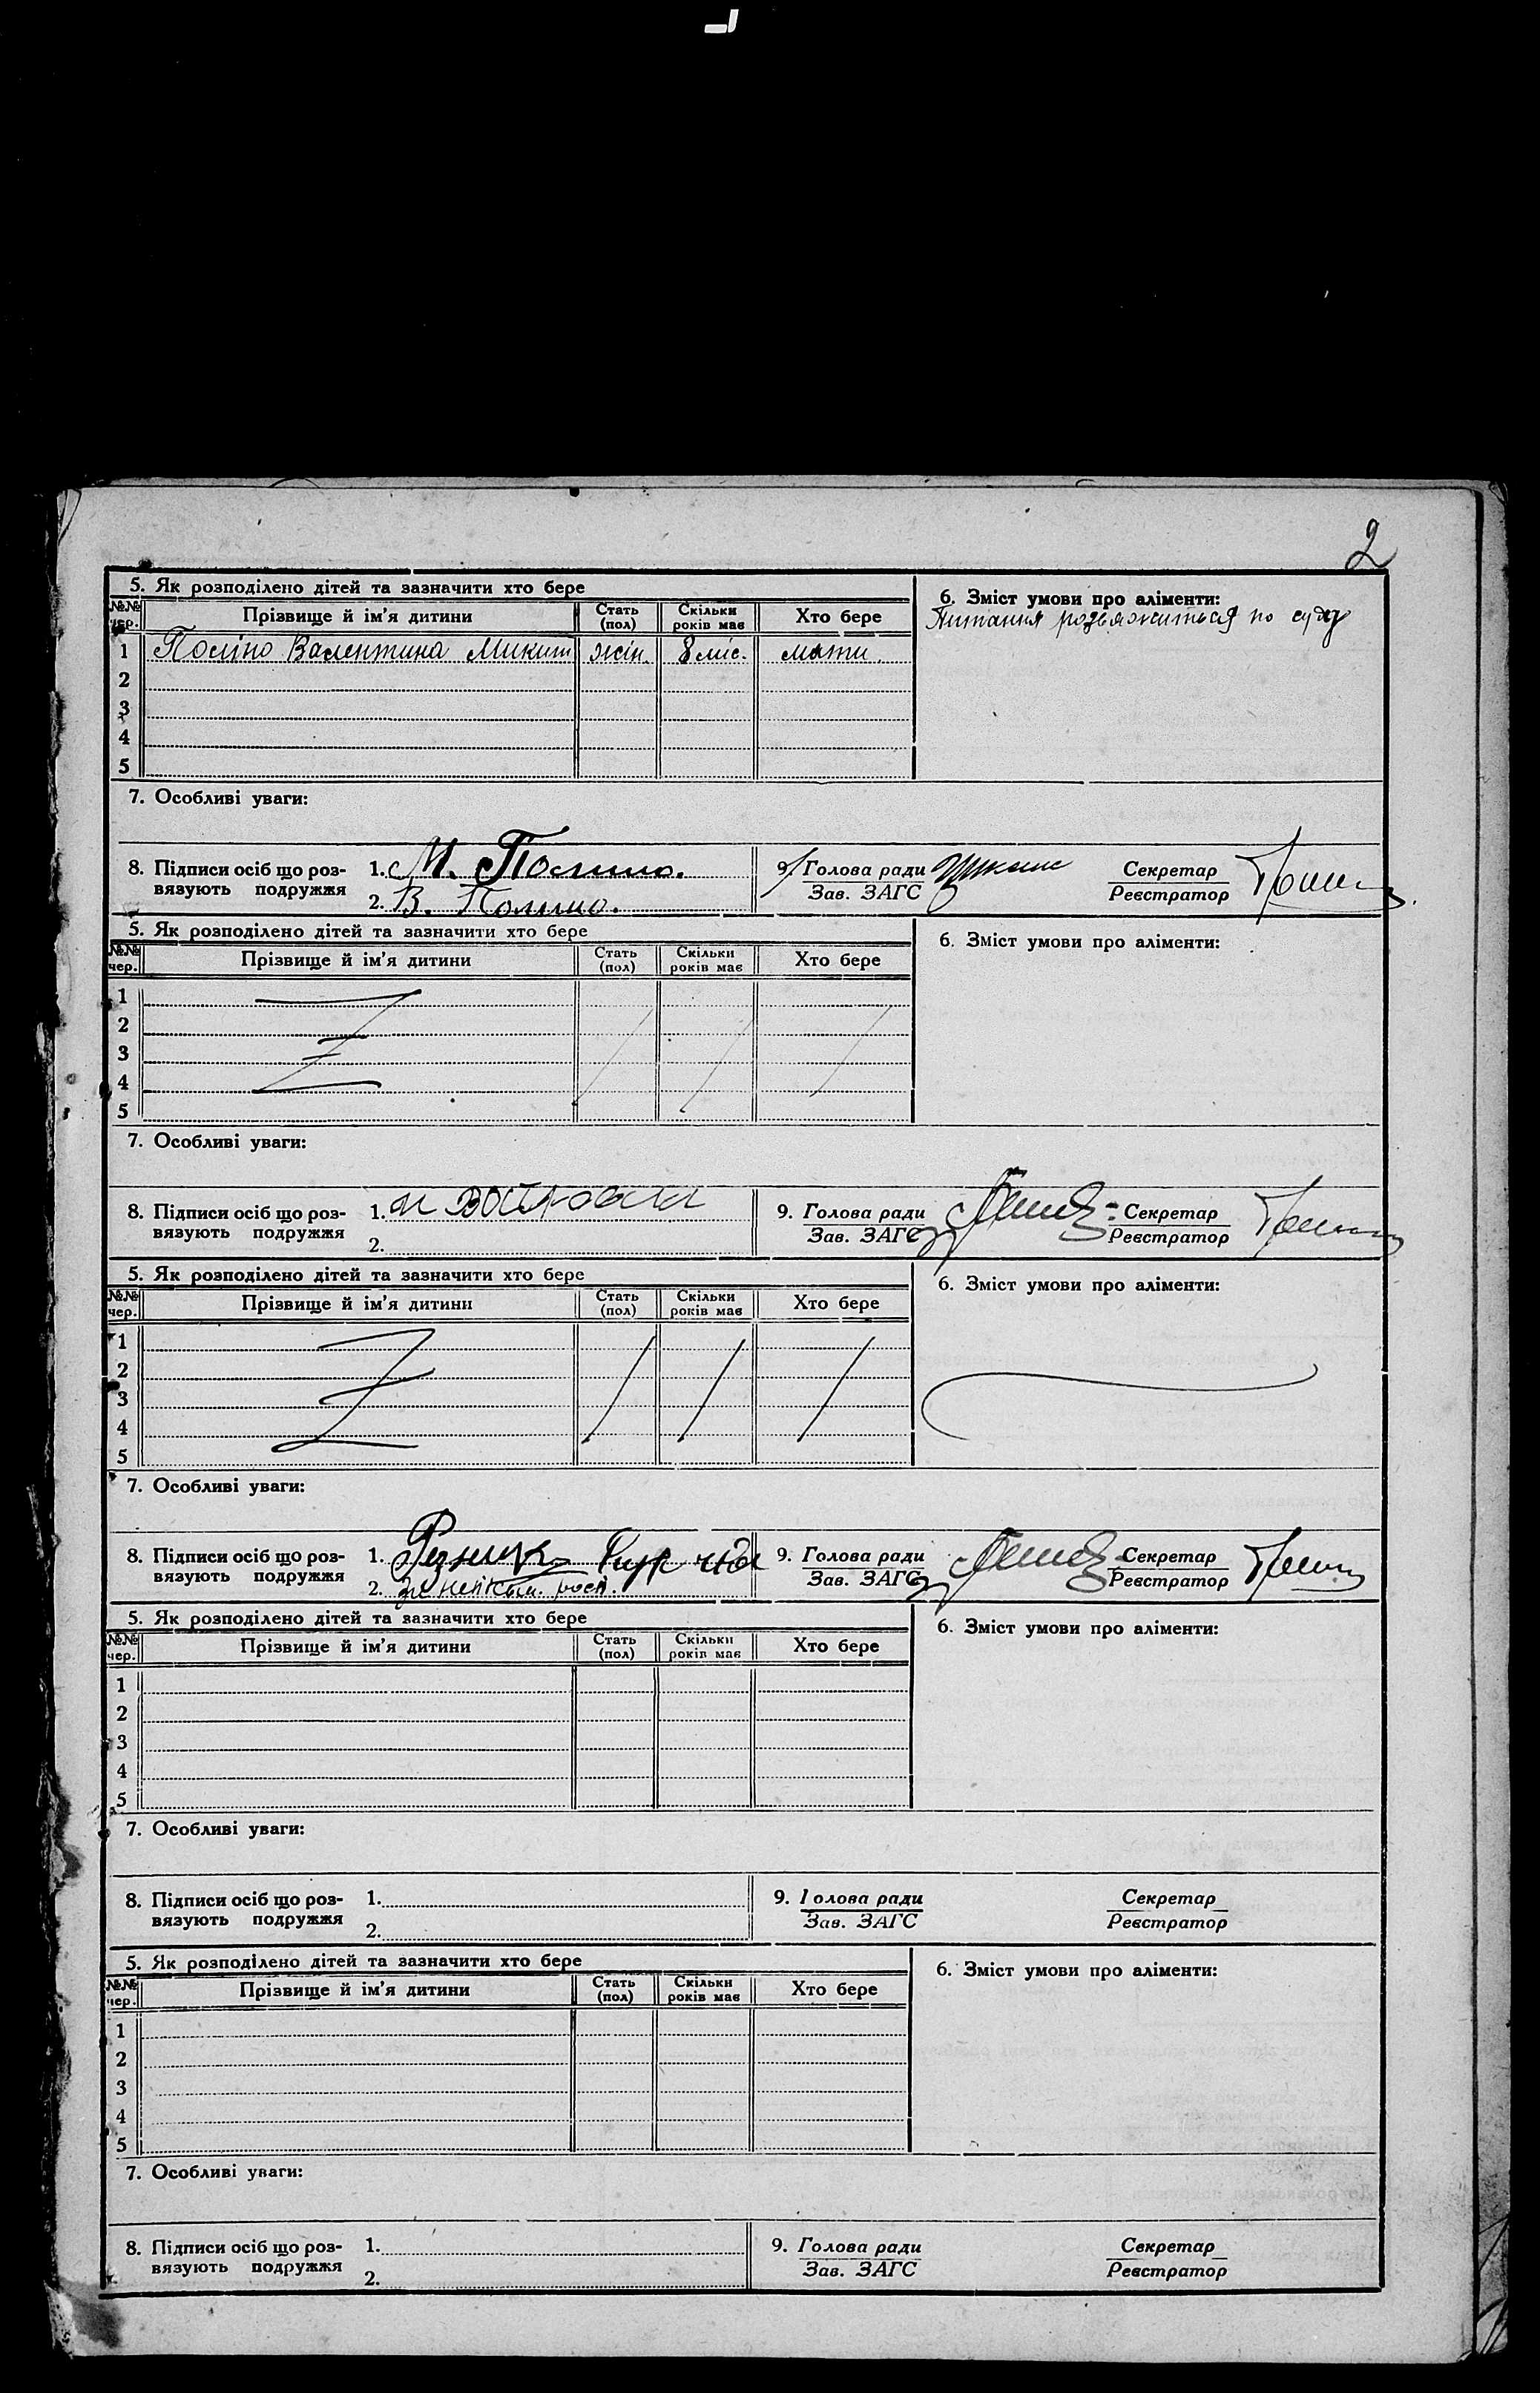 2
5. Як розподілено дітей та зазначити хто бере
6. Зміст умови про аліменти:
№№ чер. Прізвище й ім'я дитини Стать (пол) Скільки років має Хто бере
Питання розвяжиться по суду
1 Поліно Валентина Микит жін. 8 міс. мати.
2
3
4
5
7. Особливі уваги:
8. Підписи осіб що роз- 1. М. Полино. 9. Голова ради Секретар
вязують подружжя 2. В. Полино. Зав. ЗАГС Реєстратор
5. Як розподілено дітей та зазначити хто бере
6. Зміст умови про аліменти:
№№ чер. Прізвище й ім'я дитини Стать (пол) Скільки років має Хто бере
1
2
3
4
5
7. Особливі уваги:
8. Підписи осіб що роз- 1. 9. Голова ради Секретар
вязують подружжя 2. Зав. ЗАГС Реєстратор
5. Як розподілено дітей та зазначити хто бере
6. Зміст умови про аліменти:
№№ чер. Прізвище й ім'я дитини Стать (пол) Скільки років має Хто бере
1
2
3
4
5
7. Особливі уваги:
8. Підписи осіб що роз- 1. Резник 9. Голова ради Секретар
вязують подружжя 2. Зав. ЗАГС Реєстратор
5. Як розподілено дітей та зазначити хто бере
6. Зміст умови про аліменти:
№№ чер. Прізвище й ім'я дитини Стать (пол) Скільки років має Хто бере
1
2
3
4
5
7. Особливі уваги:
8. Підписи осіб що роз- 1. 9. Голова ради Секретар
вязують подружжя 2. Зав. ЗАГС Реєстратор
5. Як розподілено дітей та зазначити хто бере
6. Зміст умови про аліменти:
№№ чер. Прізвище й ім'я дитини Стать (пол) Скільки років має Хто бере
1
2
3
4
5
7. Особливі уваги:
8. Підписи осіб що роз- 1. 9. Голова ради Секретар
вязують подружжя 2. Зав. ЗАГС Реєстратор